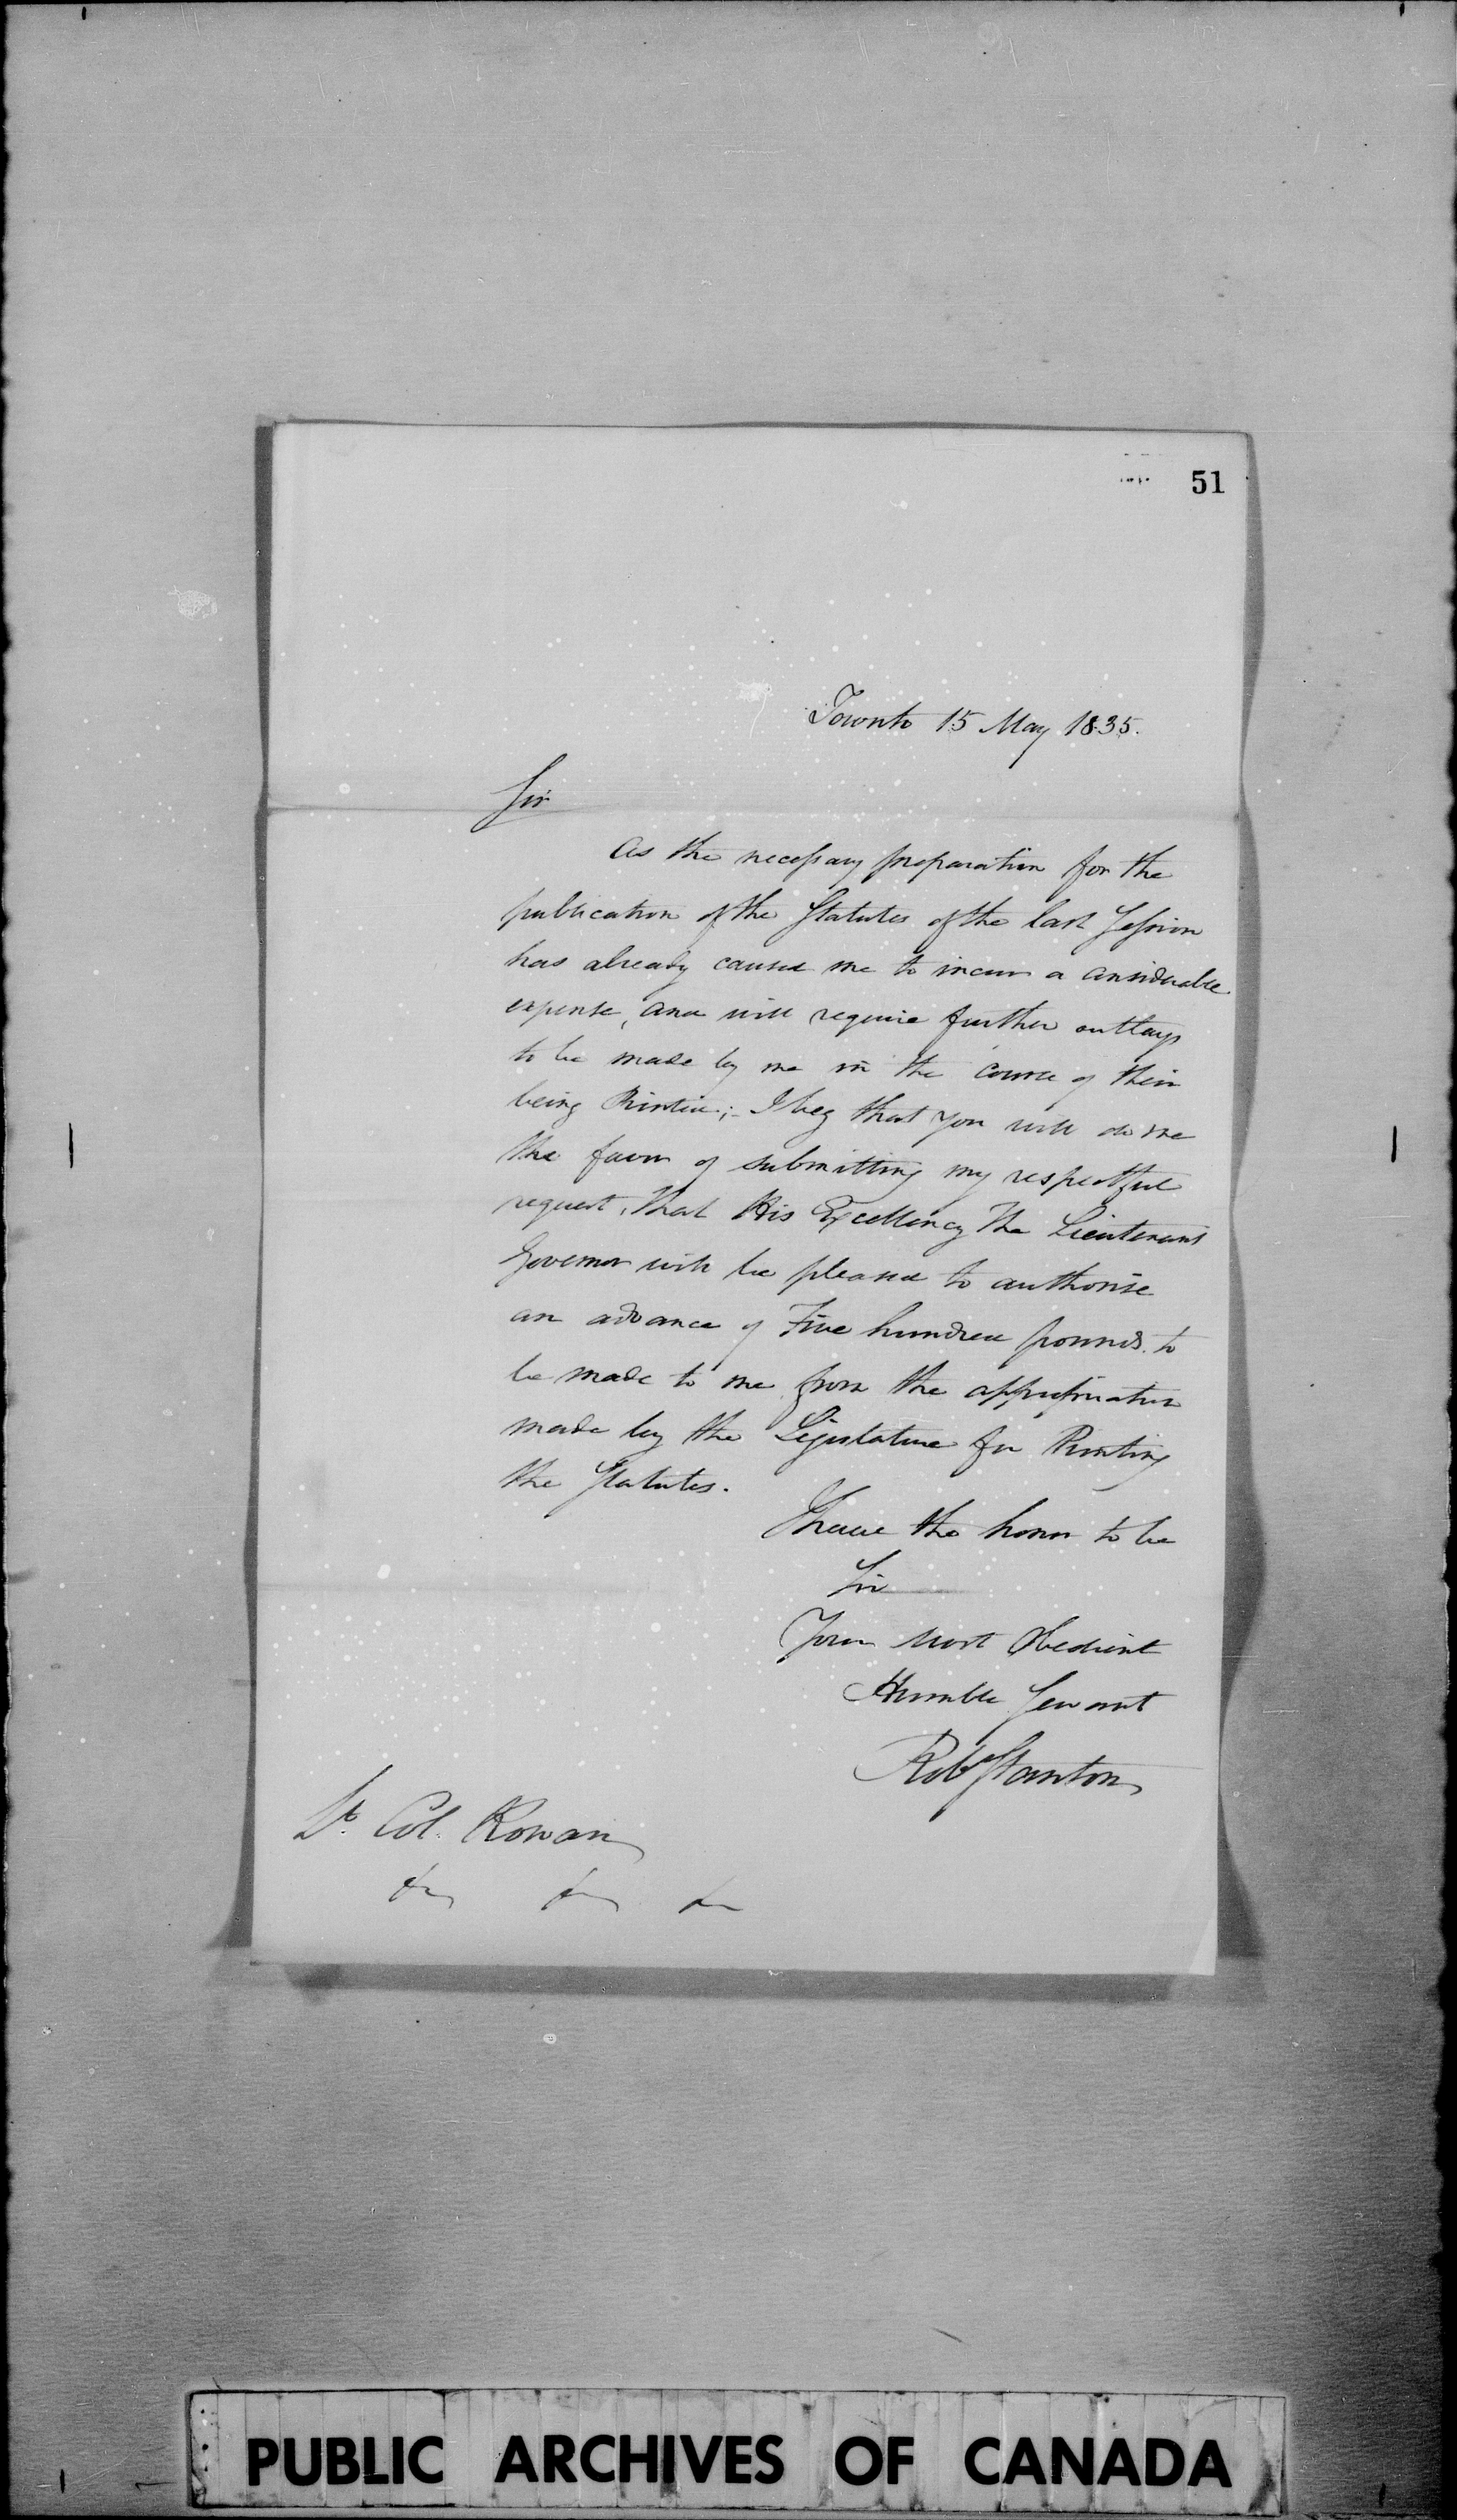 51
Toronto 15 May 1835.
Sir
As the necessary preparation for the
publication of the Statutes of the last Session
has already caused me to incur a considerable
expense, and will require further outlays
to be made by me in the course of their
being Printed;- I beg that you will do me
the favor of submitting my respectful
request, that His Excellency The Lieutenant
Governor will be pleased to authorise
an advance of Five hundred pounds to
be made to me from the appropriation
made by the Legislature for Printing
the Statutes.
I have the honor to be
Sir
Your Most Obedient
Humble Servant
Robt Stanton
Lt. Col. Rowan
&c &c &c
PUBLIC ARCHIVES OF CANADA